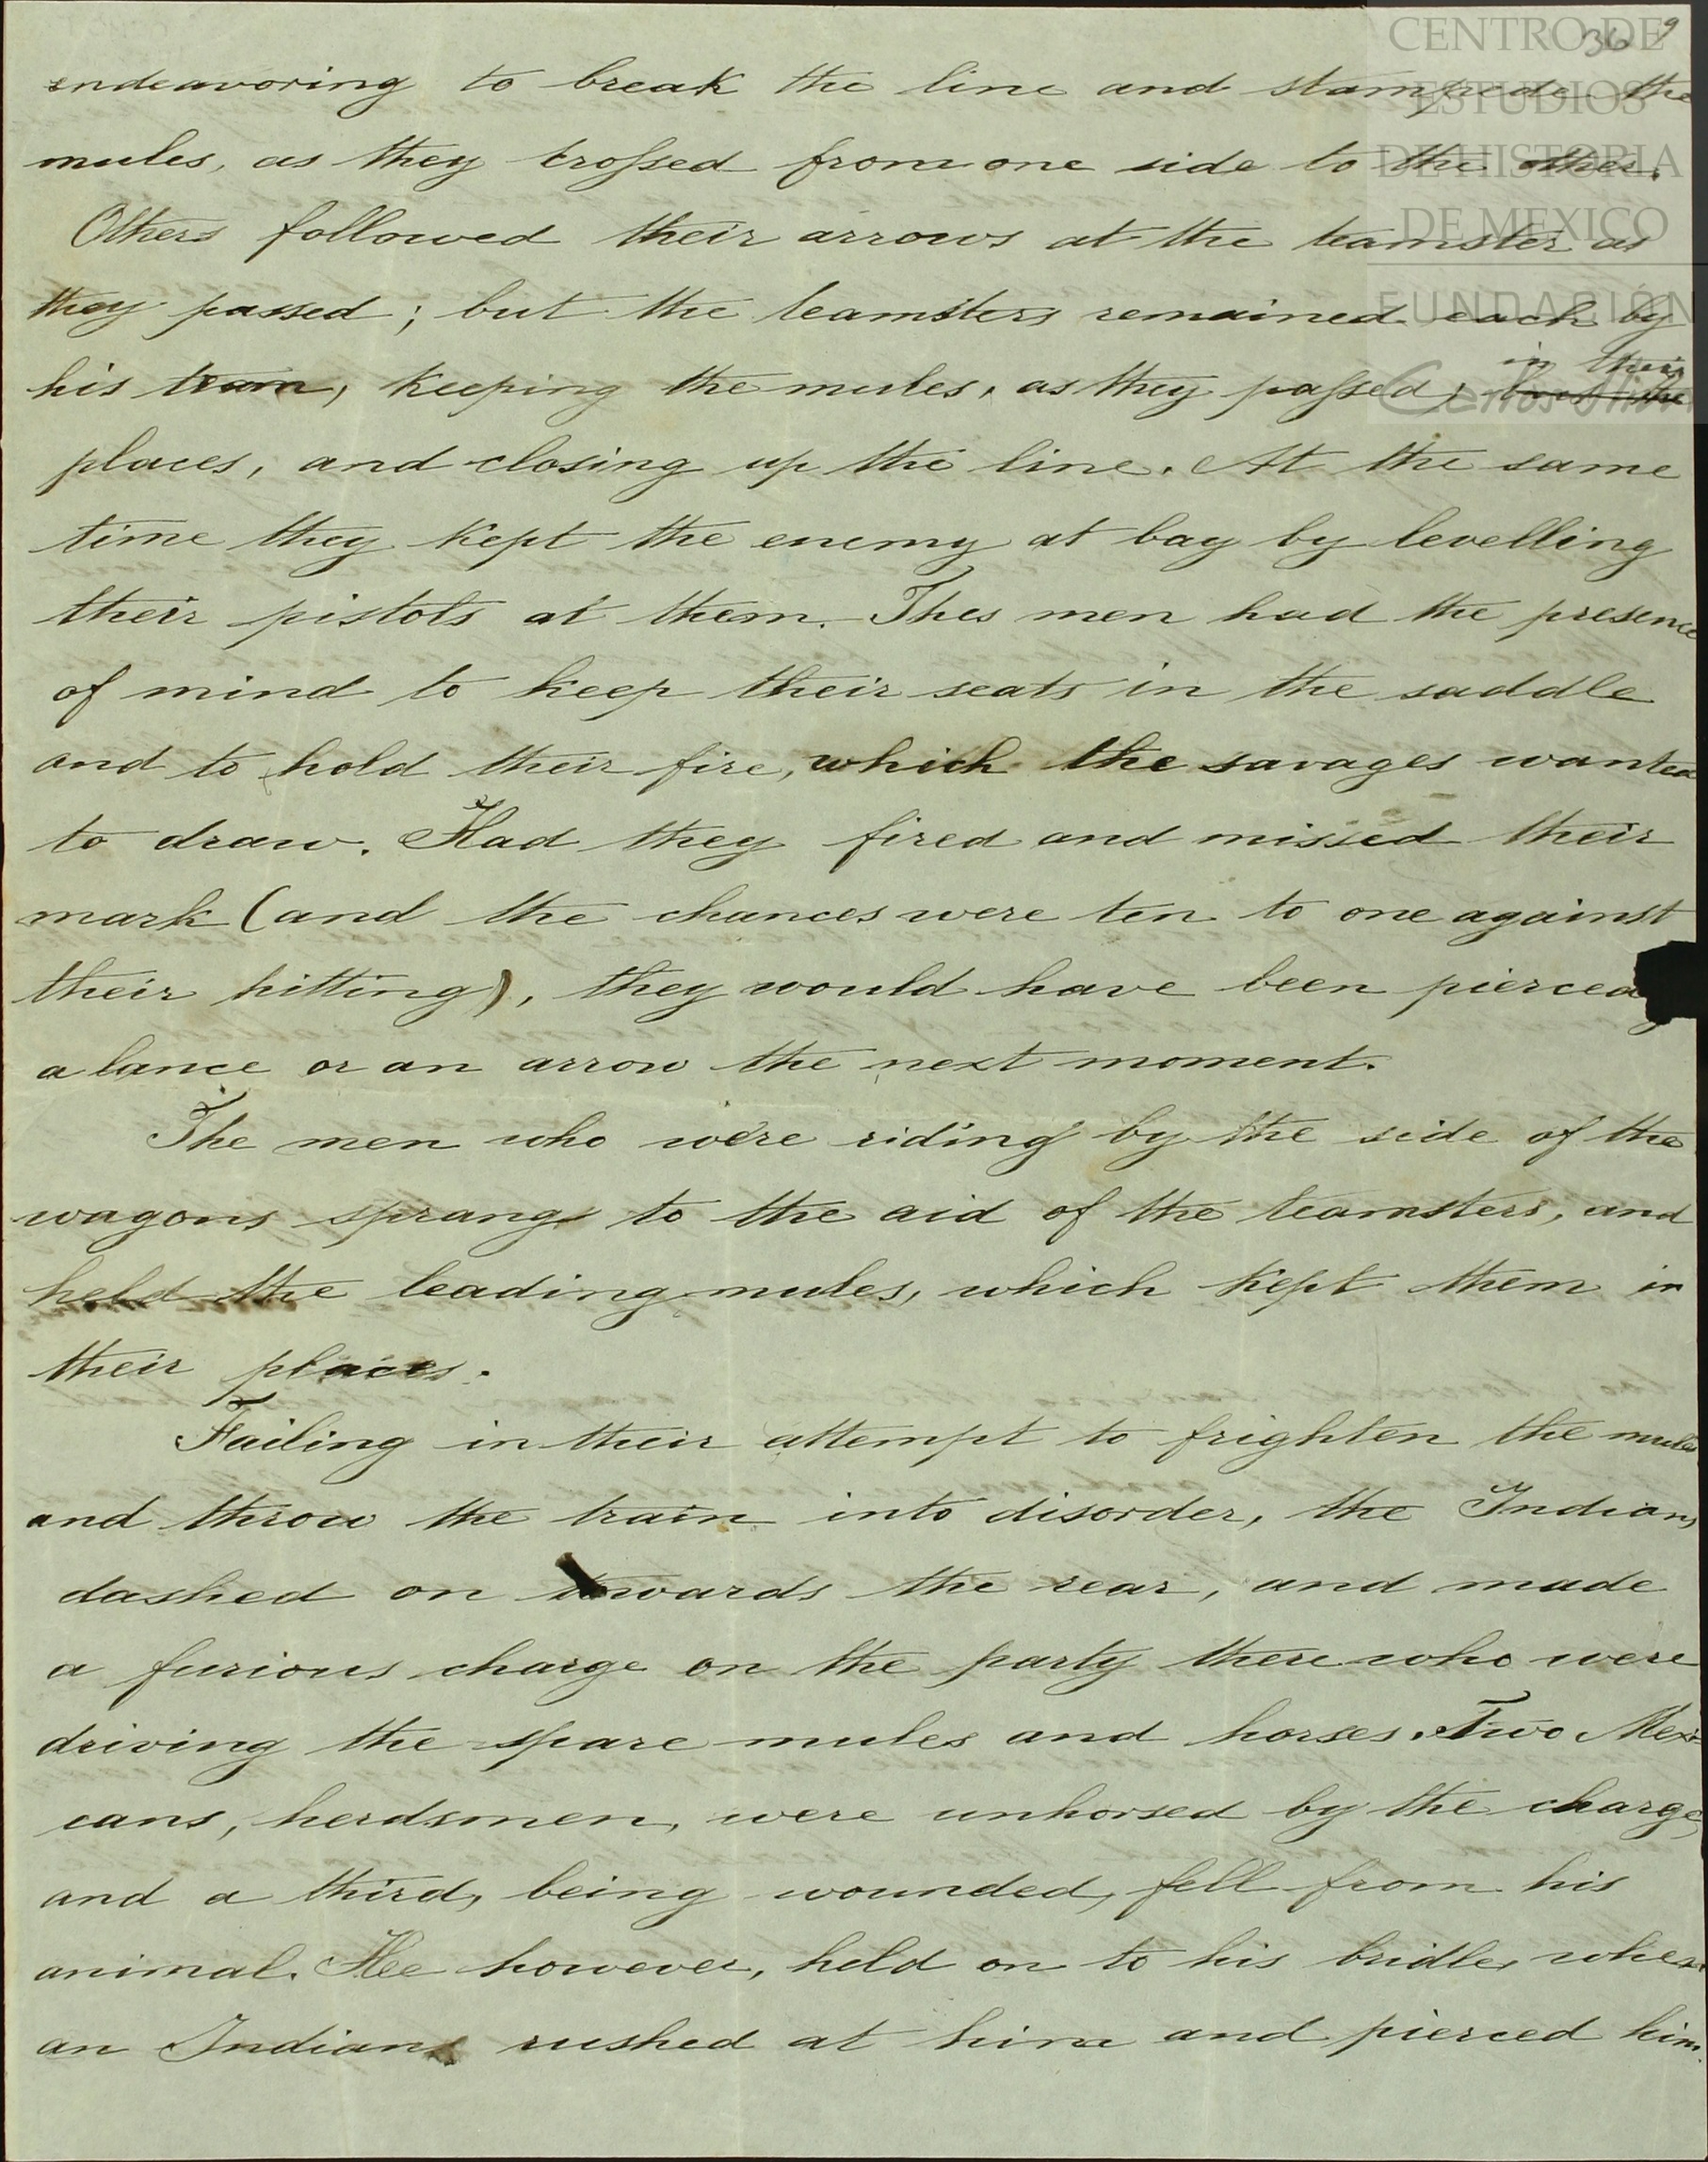 36 9
endeavoring to break the line and stampede the
mules, as they crossed from one side to the other.
Others followed their arrows at the teamster as
they passed; but the teamsters remained each by
in their
his team, keeping the mules, as they passed, but the
places, and closing up the line. At the same
time they kept the enemy at bay by levelling
their pistols at them. Thes men had the presence
of mind to keep their seats in the saddle
and to hold their fire, which the savages wanted
to draw. Had they fired and missed their
mark (and the chances were ten to one against
their hitting), they would have been pierced
a lance or an arrow the next moment.
The men who were riding by the side of the
wagons sprang to the aid of the teamsters, and
held the leading mules, which kept them in
their places.
Failing in their attempt to frighten the mules
and throw the train into disorder, the Indians
dashed on towards the rear, and made
a furious charge on the party there who were
driving the spare mules and horses. Two Mexi-
cans, herdsmen, were unhorsed by the charge,
and a third, being wounded, fell from his
animal. Hee however, held on to his bridle, when
an Indian rushed at him and pierced him
CENTRO DE
ESTUDIOS
DE HISTORIA
DE MEXICO
FUNDACIÓN
Carlos Slim